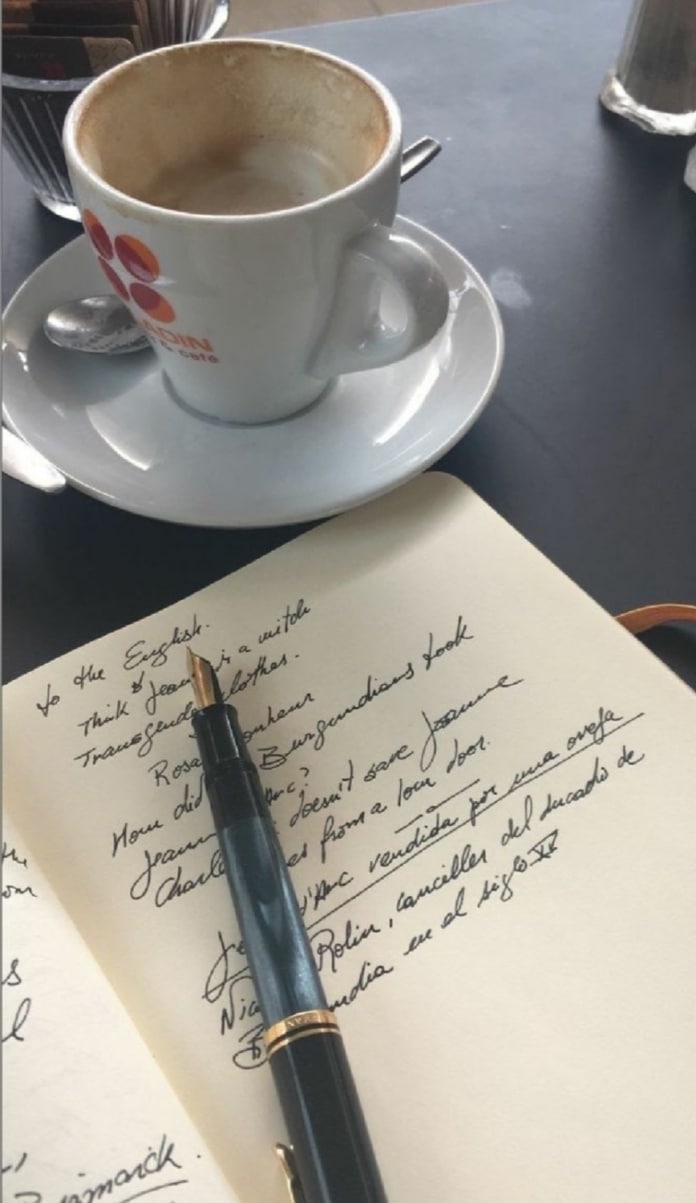 ADIN
café
to the English.
Think Jean is a witch
Transgender clothes.
Rosa Bonheur
How did Burgundians took
Jeann Arc?
Charle doesn't save Joanne
es from a low door.
d'Arc vendida por una oveja
Rolin, canciller del ducado de
ndia en el siglo XV
the
om
s
l
Bismarck.